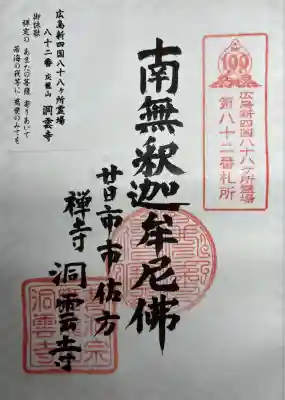 広島新四国八十八ヶ所霊場
八十二番 応龍山 洞雲寺
御詠歌
禅定の あまたの菩薩 寄りあいて
苦海の我等に 慈愛のみてを
100
広島新四国八十八ヶ所霊場
第八十二番札所
南無釈迦牟尼佛
廿日市市佐方
禅寺 洞雲寺
洞雲寺